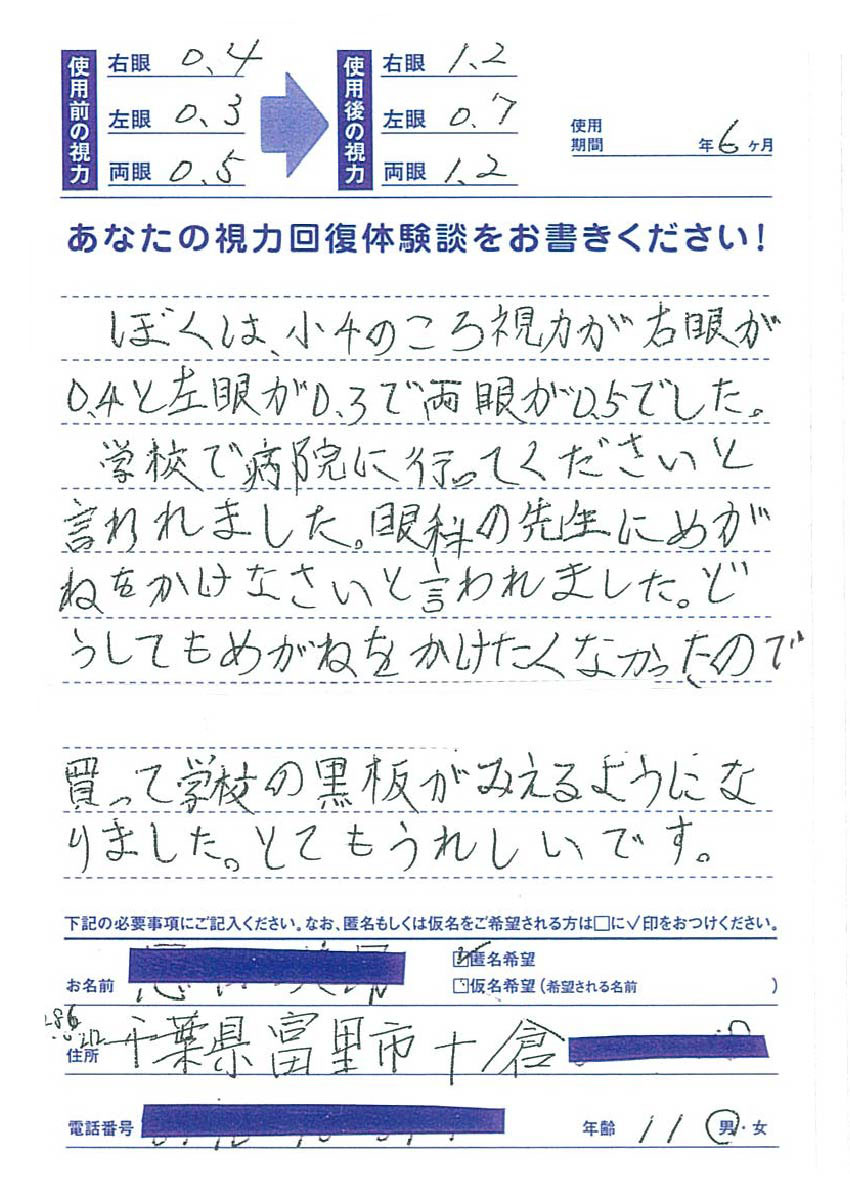 使用前の視力
右眼 0.4
左眼 0.3
両眼 0.5
使用後の視力
右眼 1.2
左眼 0.7
両眼 1.2
使用期間 年6ヶ月
あなたの視力回復体験談をお書きください！
ぼくは、小4のころ視力が右眼が
0.4と左眼が0.3で両眼が0.5でした。
学校で病院に行ってくださいと
言われました。眼科の先生にめが
ねをかけなさいと言われました。ど
うしてもめがねをかけたくなかったので
買って学校の黒板がみえるようにな
りました。とてもうれしいです。
下記の必要事項にご記入ください。なお、匿名もしくは仮名をご希望される方は□に√印をおつけください。
お名前
☑匿名希望
□仮名希望（希望される名前　　　）
住所 千葉県富里市十倉
電話番号
年齢 11 男・女